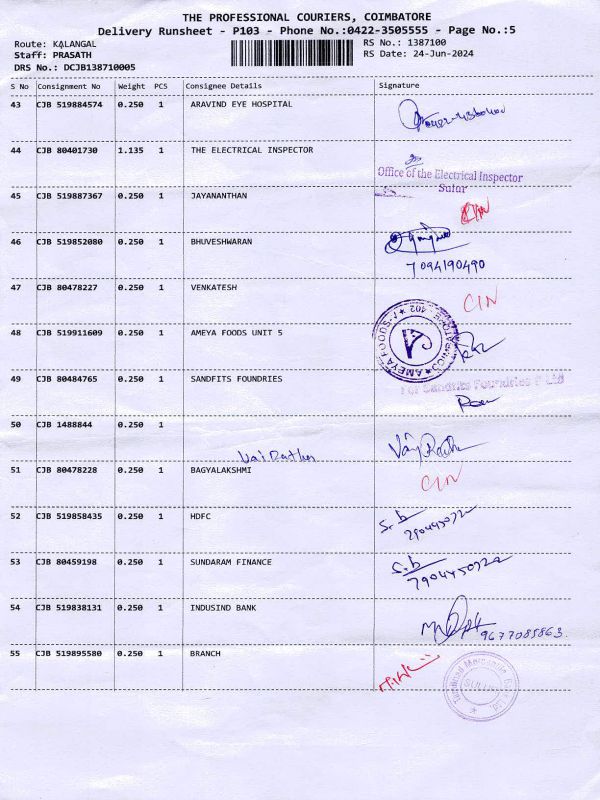 THE PROFESSIONAL COURIERS, COIMBATORE
Delivery Runsheet - P103 - Phone No.:0422-3505555 - Page No.:5
Route: KALANGAL
RS No.: 1387100
Staff: PRASATH
RS Date: 24-Jun-2024
DRS No.: DCJB138710005
S No Consignment No Weight PCS Consignee Details Signature
43 CJB 519884574 0.250 1 ARAVIND EYE HOSPITAL
44 CJB 80401730 1.135 1 THE ELECTRICAL INSPECTOR
Office of the Electrical Inspector
Sulur
45 CJB 519887367 0.250 1 JAYANANTHAN
46 CJB 519852080 0.250 1 BHUVESHWARAN
7094190490
47 CJB 80478227 0.250 1 VENKATESH CIN
48 CJB 519911609 0.250 1 AMEYA FOODS UNIT 5
AMEYA FOODS
49 CJB 80484765 0.250 1 SANDFITS FOUNDRIES
For Sandfits Foundries P Ltd
50 CJB 1488844 0.250 1
51 CJB 80478228 0.250 1 BAGYALAKSHMI CIN
52 CJB 519858435 0.250 1 HDFC S.b
53 CJB 80459198 0.250 1 SUNDARAM FINANCE S.b
54 CJB 519838131 0.250 1 INDUSIND BANK
9677085863.
55 CJB 519895580 0.250 1 BRANCH
Tamilnad Mercantile Bank Ltd.
SULUR